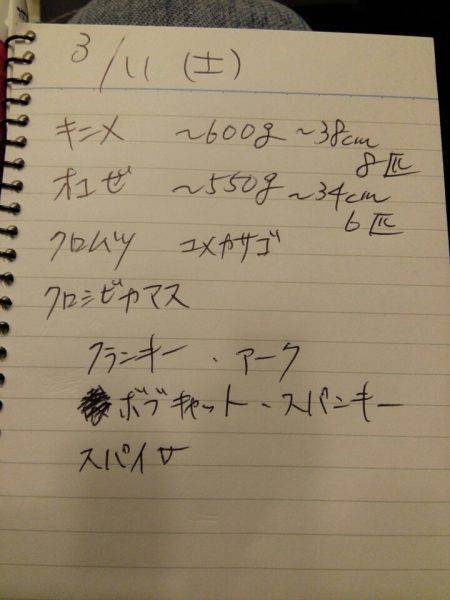 3/11 (土)
キンメ ~600g ~38cm
8匹
オコゼ ~550g ~34cm
6匹
クロムツ ユメカサゴ
クロシビカマス
クランキー・アーク
ボブキャット・スパンキー
スパイサ